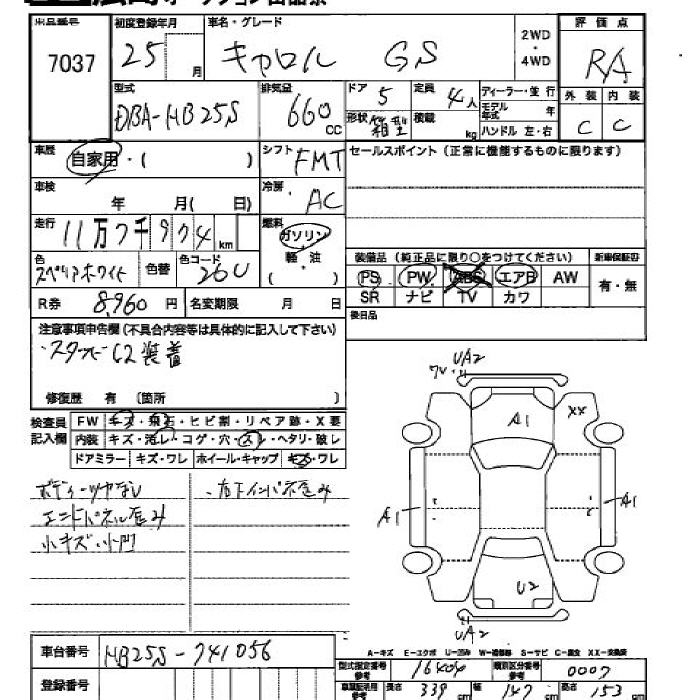 出品番号 初度登録年月 車名・グレード 評価点
7037 25 月 キャロル GS 2WD・4WD RA
型式 排気量 ドア 5 定員 4人 ディーラー・並行 外装 内装
DBA-HB25S 660 CC 形状 箱型 積載 kg モデル年式 年 C C
ハンドル 左・右
車歴 自家用・( ) シフト FMT セールスポイント(正常に機能するものに限ります)
車検 年 月( 日) 冷房 AC
走行 11万7千974 km 燃料 ガソリン 軽・油 ( )
色 スペリアホワイト 色替 色コード 26U
装備品(純正品に限り○をつけてください) 新車保証書
PS PW ABS エアB AW 有・無
SR ナビ TV カワ
R券 8,960 円 名変期限 月 日 後日品
注意事項申告欄(不具合内容等は具体的に記入して下さい)
修復歴 有 (箇所 )
UA2
A1 XX
検査員記入欄 FW キズ・飛石・ヒビ割・リペア跡・X要
内装 キズ・汚レ・コゲ・穴・スレ・ヘタリ・破レ
ドアミラー キズ・ワレ ホイール・キャップ キズ・ワレ
ボディーツヤなし
エンドパネル歪み
小キズ・小凹
A1 A1
U2
UA2
A-キズ E-エクボ U-凹み W-補修跡 S-サビ C-腐食 XX-交換済
車台番号 HB25S-741056
登録番号
型式指定番号 参考 16404 類別区分番号 参考 0007
長さ 339 cm 幅 147 cm 高さ 153 cm